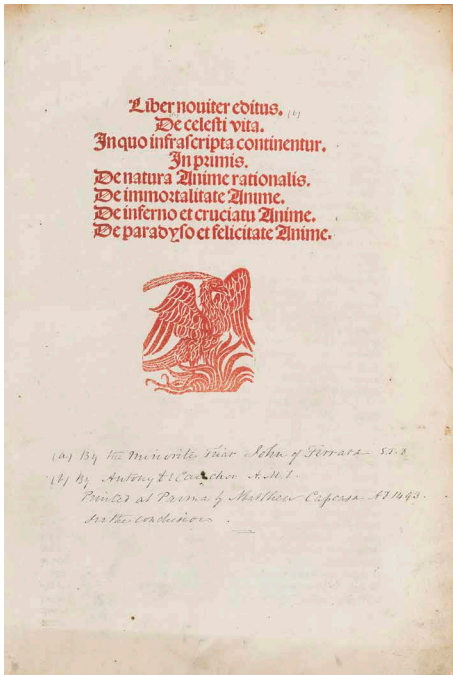 Liber noviter editus. (b)
De celesti vita.
In quo infrascripta continentur.
In primis.
De natura Anime rationalis.
De immortalitate Anime.
De inferno et cruciatu Anime.
De paradyso et felicitate Anime.
(a) By the Minorite Friar John of Ferrara
(b) By Antony
Printed at Parma by Matthew Capcasa AD 149
in the conclusion.